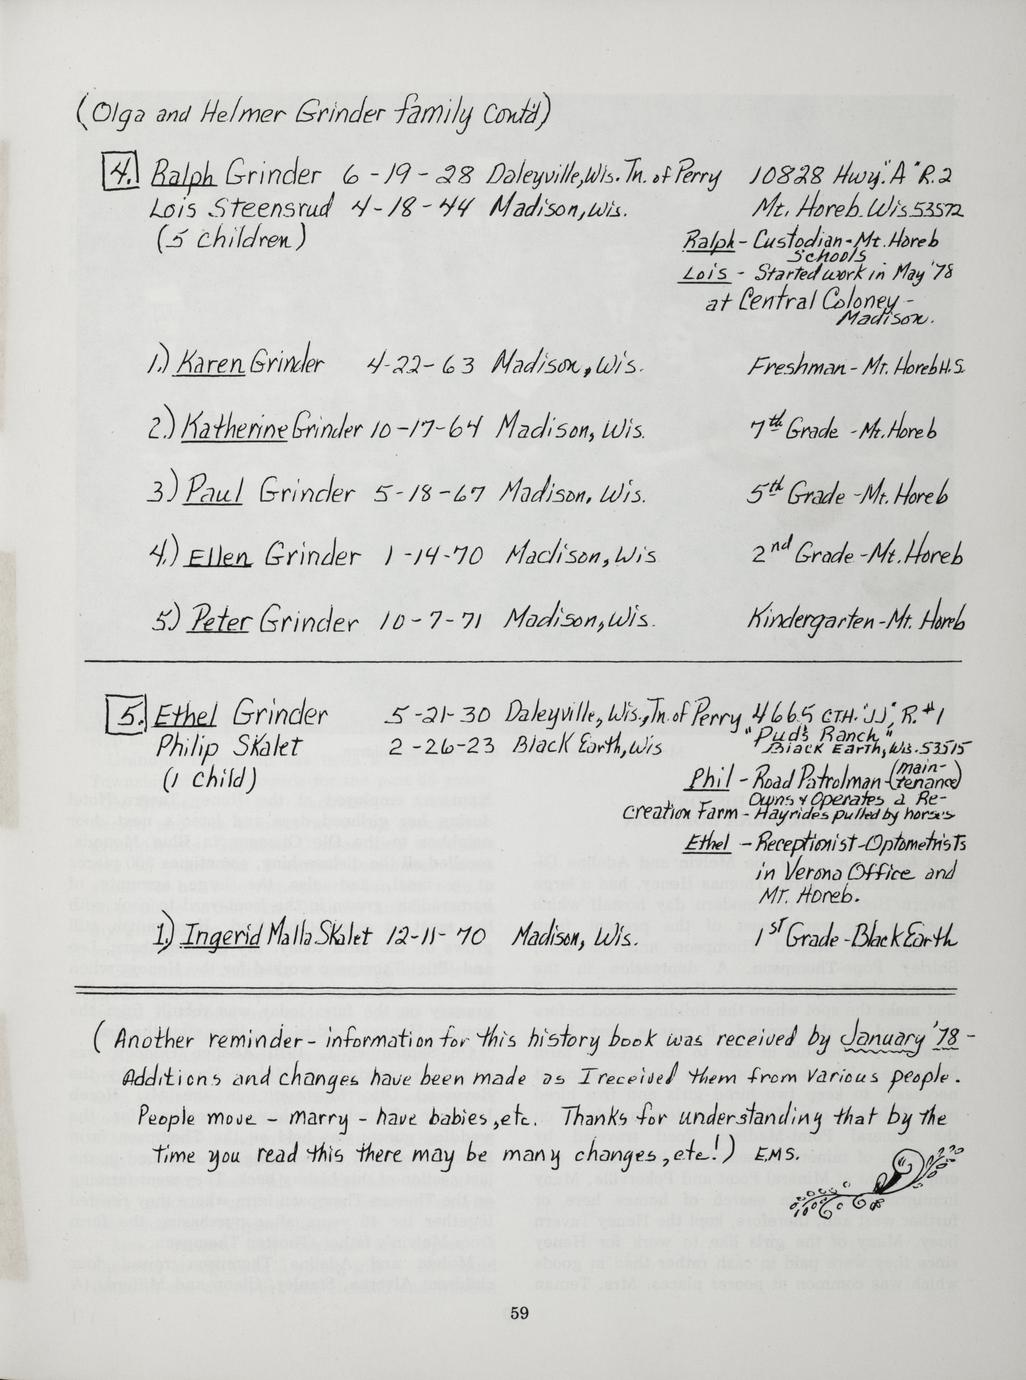 (Olga and Helmer Grinder family Cont'd)
4. Ralph Grinder 6-19-28 Daleyville, Wis. Tn. of Perry 10828 Hwy. "A" R.2
Lois Steensrud 4-18-44 Madison, Wis. Mt. Horeb. Wis 53572
(5 Children) Ralph - Custodian - Mt. Horeb
Schools
Lois - Started work in May '78
at Central Coloney -
Madison.
1.) Karen Grinder 4-22-63 Madison, Wis. Freshman - Mt. Horeb H.S.
2.) Katherine Grinder 10-17-64 Madison, Wis. 7th Grade - Mt. Horeb
3.) Paul Grinder 5-18-67 Madison, Wis. 5th Grade - Mt. Horeb
4.) Ellen Grinder 1-14-70 Madison, Wis 2nd Grade - Mt. Horeb
5.) Peter Grinder 10-7-71 Madison, Wis. Kindergarten - Mt. Horeb
5. Ethel Grinder 5-21-30 Daleyville, Wis., Tn. of Perry 4665 CTH. "JJ", R. #1
"Pud's Ranch"
Philip Skalet 2-26-23 Black Earth, Wis Black Earth, Wis. 53515
(1 Child) Phil - Road Patrolman - (main-
tenance)
Owns & Operates a Re-
creation Farm - Hayrides pulled by horses
Ethel - Receptionist - Optometrists
in Verona Office and
Mt. Horeb.
1.) Ingerid Malla Skalet 12-11-70 Madison, Wis. 1st Grade - Black Earth
(Another reminder - information for this history book was received by January '78 -
Additions and changes have been made as I received them from various people.
People move - marry - have babies, etc. Thanks for understanding that by the
time you read this there may be many changes, etc!) E.M.S.
59